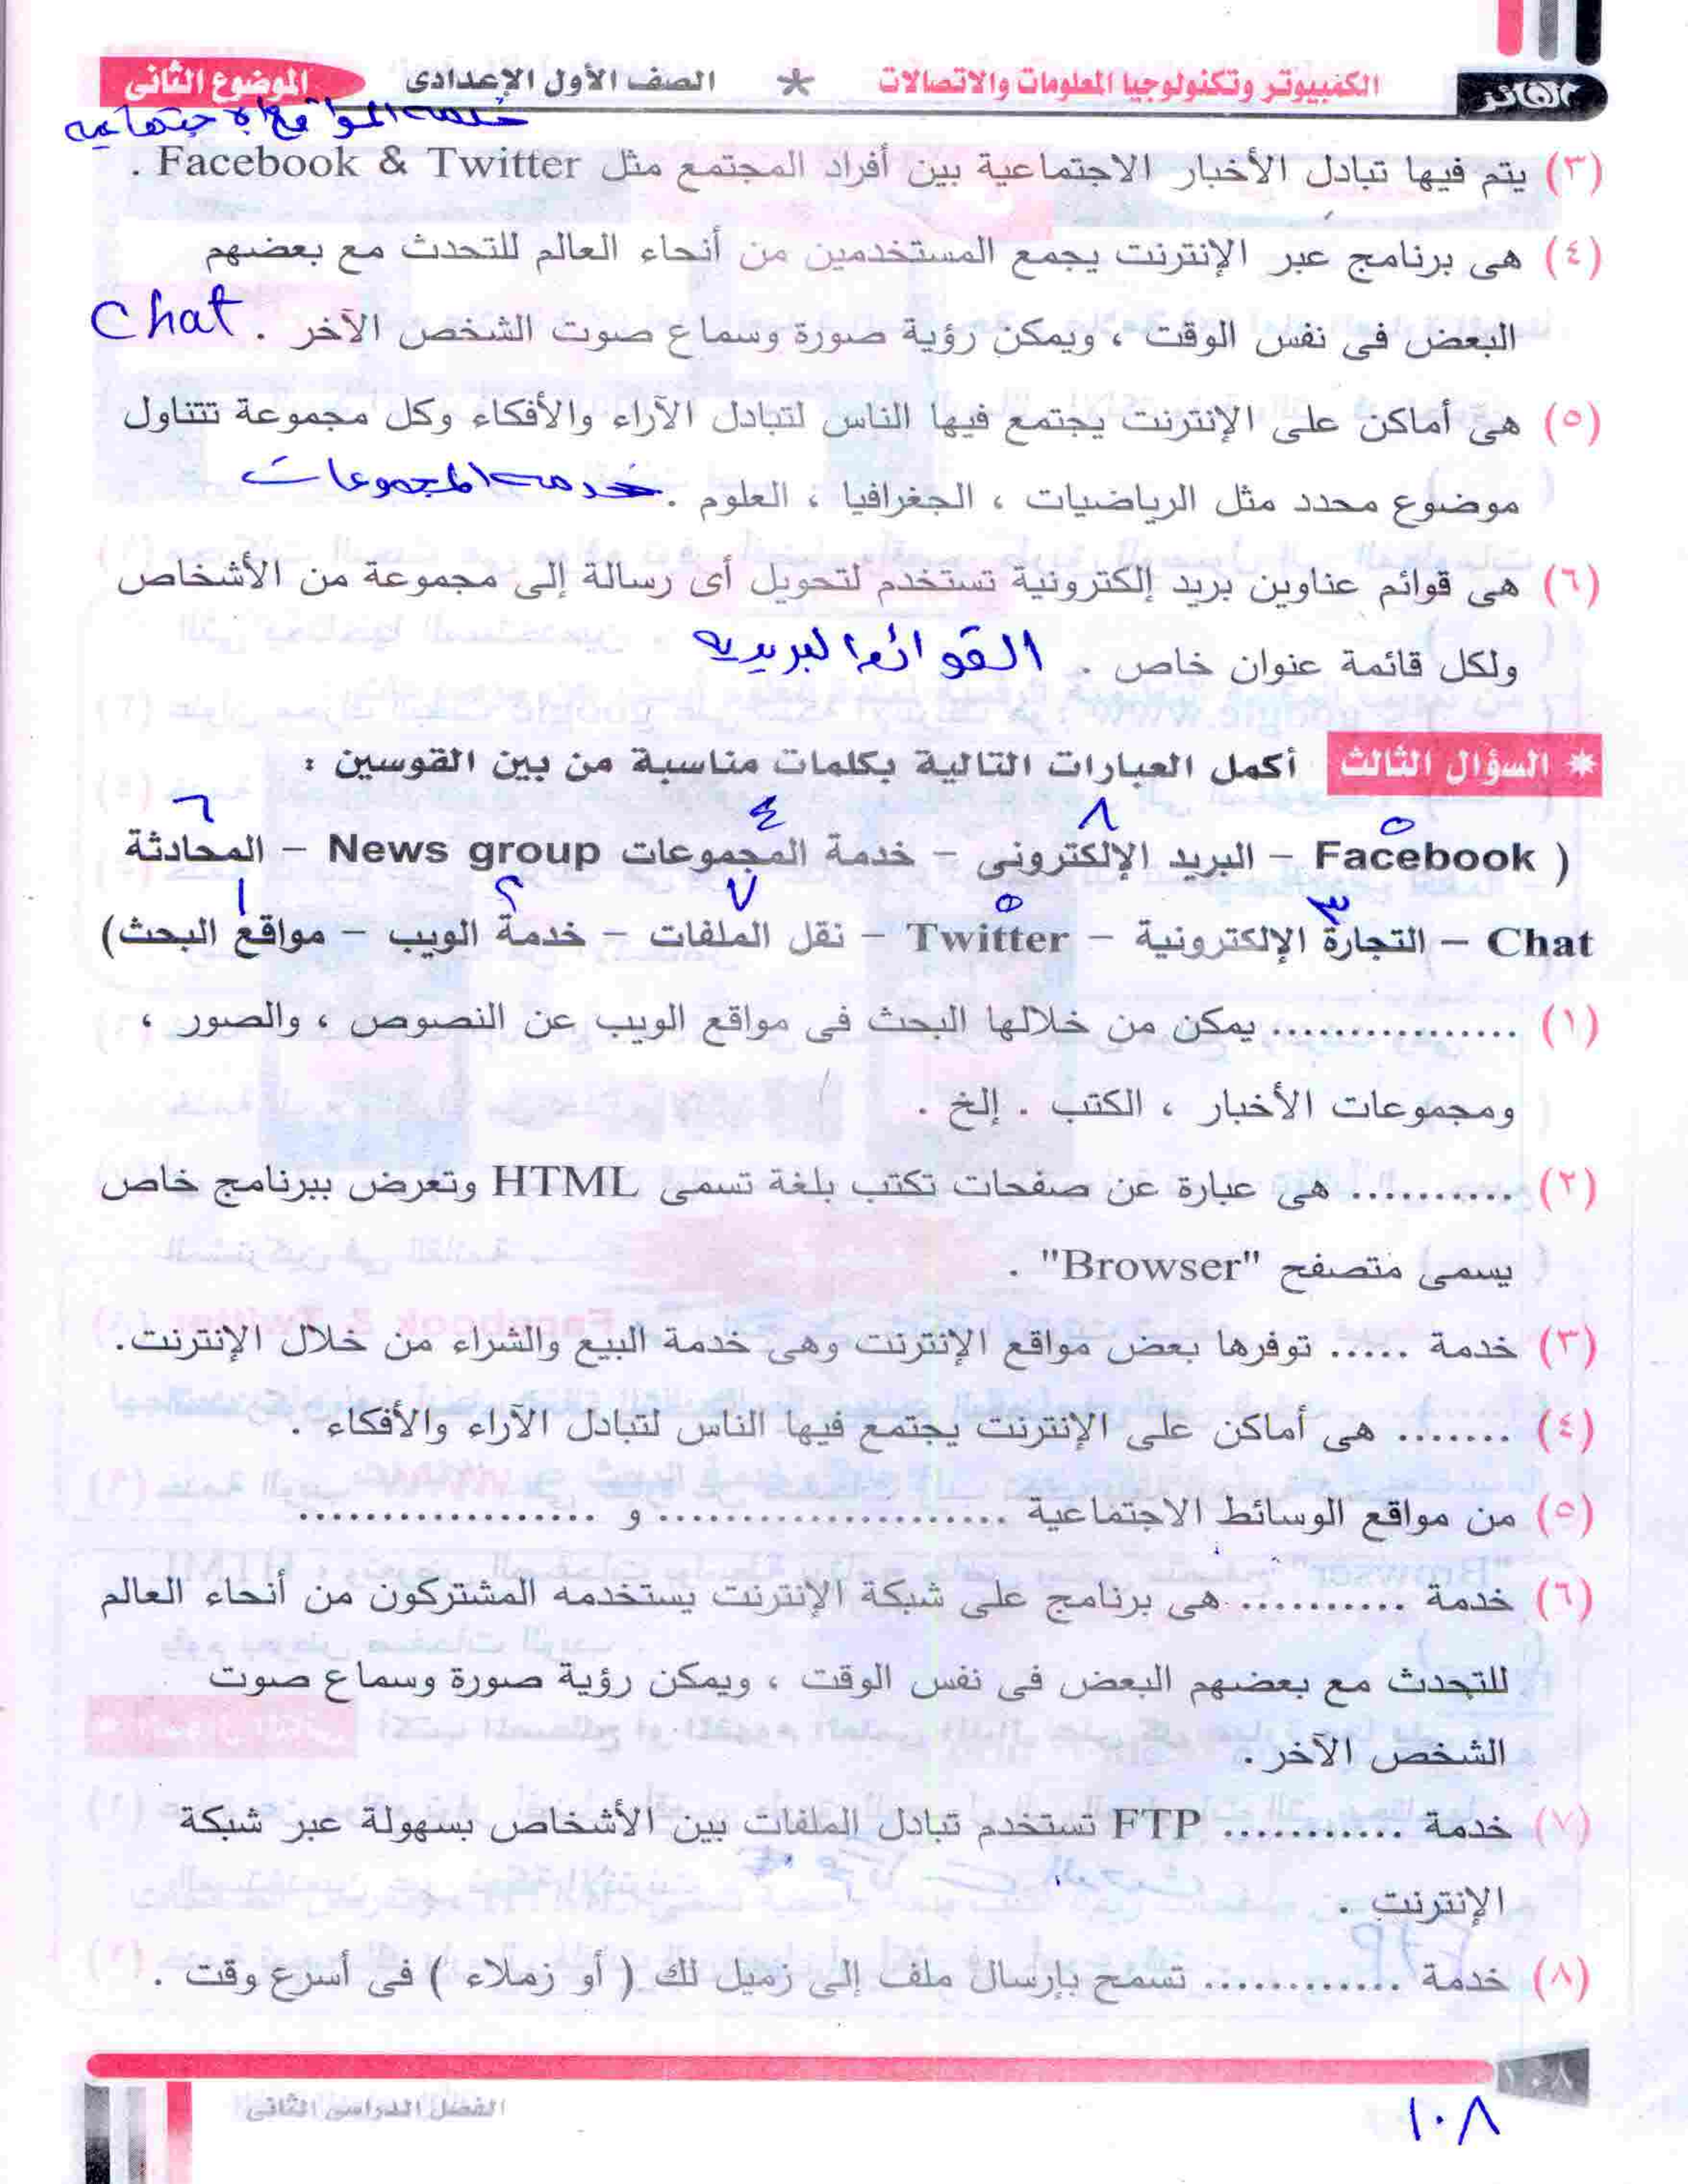 الفائز
الكمبيوتر وتكنولوجيا المعلومات والاتصالات * الصف الأول الإعدادى الموضوع الثانى
خدمه المواقع الاجتماعيه
(٣) يتم فيها تبادل الأخبار الاجتماعية بين أفراد المجتمع مثل Facebook & Twitter .
(٤) هى برنامج عبر الإنترنت يجمع المستخدمين من أنحاء العالم للتحدث مع بعضهم
البعض فى نفس الوقت ، ويمكن رؤية صورة وسماع صوت الشخص الآخر . Chat
(٥) هى أماكن على الإنترنت يجتمع فيها الناس لتبادل الآراء والأفكاء وكل مجموعة تتناول
موضوع محدد مثل الرياضيات ، الجغرافيا ، العلوم . خدمه المجموعات
(٦) هى قوائم عناوين بريد إلكترونية تستخدم لتحويل أى رسالة إلى مجموعة من الأشخاص
ولكل قائمة عنوان خاص . القوائم البريديه
* السؤال الثالث أكمل العبارات التالية بكلمات مناسبة من بين القوسين :
٥ ٨ ٤ ٦
( Facebook – البريد الإلكترونى – خدمة المجموعات News group – المحادثة
٣ ٥ ٧ ٢ ١
Chat – التجارة الإلكترونية – Twitter – نقل الملفات – خدمة الويب – مواقع البحث)
(١) ................ يمكن من خلالها البحث فى مواقع الويب عن النصوص ، والصور ،
ومجموعات الأخبار ، الكتب . إلخ .
(٢) ........... هى عبارة عن صفحات تكتب بلغة تسمى HTML وتعرض ببرنامج خاص
يسمى متصفح "Browser" .
(٣) خدمة ..... توفرها بعض مواقع الإنترنت وهى خدمة البيع والشراء من خلال الإنترنت.
(٤) ....... هى أماكن على الإنترنت يجتمع فيها الناس لتبادل الآراء والأفكاء .
(٥) من مواقع الوسائط الاجتماعية ...................... و ...................
(٦) خدمة ........... هى برنامج على شبكة الإنترنت يستخدمه المشتركون من أنحاء العالم
للتحدث مع بعضهم البعض فى نفس الوقت ، ويمكن رؤية صورة وسماع صوت
الشخص الآخر .
(٧) خدمة ............ FTP تستخدم تبادل الملفات بين الأشخاص بسهولة عبر شبكة
الإنترنت .
(٨) خدمة ............. تسمح بإرسال ملف إلى زميل لك ( أو زملاء ) فى أسرع وقت .
١٠٨
الفصل الدراسى الثانى
١٠٨